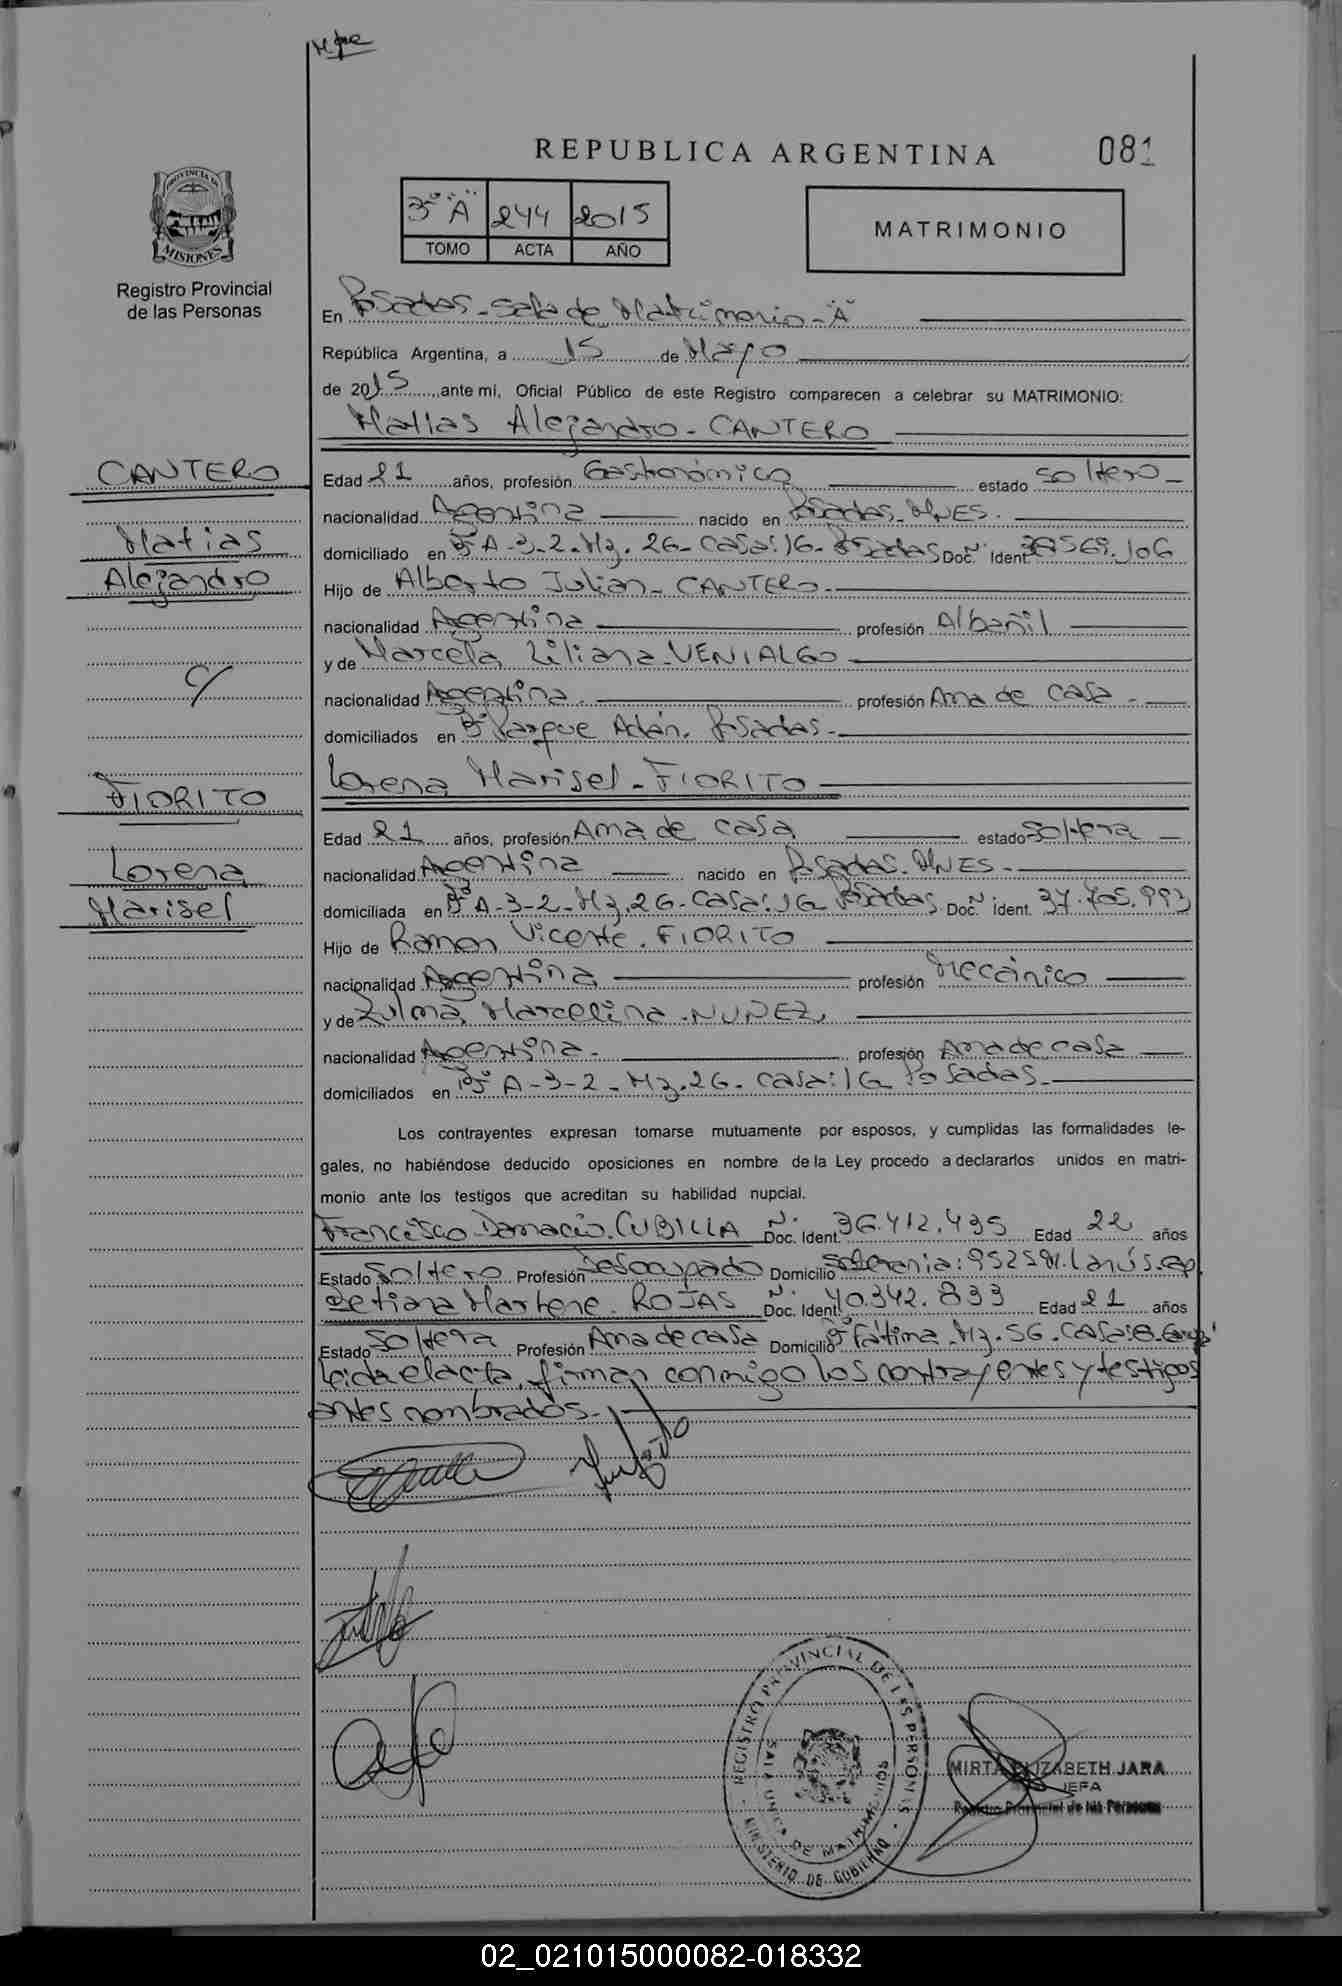 REPUBLICA ARGENTINA 081
3º "A" 244 2015
TOMO ACTA AÑO
MATRIMONIO
PROVINCIA DE MISIONES
Registro Provincial
de las Personas
En Posadas - Sala de Matrimonio - "A"
República Argentina, a 15 de Mayo
de 2015, ante mi, Oficial Público de este Registro comparecen a celebrar su MATRIMONIO:
Matias Alejandro - CANTERO
CANTERO
Matias
Alejandro
c/
FIORITO
Lorena
Marisel
Edad 21 años, profesión Gastronómico estado Soltero -
nacionalidad Argentina nacido en Posadas - Mnes.
domiciliado en Bº A-3-2-Mz. 26- Casa: 16- Posadas Doc. Nº Ident. 38569.106
Hijo de Alberto Julian - CANTERO -
nacionalidad Argentina profesión Albañil
y de Marcela Liliana - VENIALGO
nacionalidad Argentina - profesión Ama de casa -
domiciliados en Bº Parque Adán. Posadas -
Lorena Marisel - FIORITO
Edad 21 años, profesión Ama de casa estado Soltera -
nacionalidad Argentina nacido en Posadas - Mnes -
domiciliada en Bº A-3-2-Mz. 26- Casa: 16 Posadas Doc. Nº Ident. 37.705.993
Hijo de Ramon Vicente - FIORITO
nacionalidad Argentina profesión Mecánico
y de Zulma Marcelina - NUÑEZ,
nacionalidad Argentina - profesión Ama de casa
domiciliados en Bº A-3-2-Mz. 26- Casa: 16 Posadas -
Los contrayentes expresan tomarse mutuamente por esposos, y cumplidas las formalidades le-
gales, no habiéndose deducido oposiciones en nombre de la Ley procedo a declararlos unidos en matri-
monio ante los testigos que acreditan su habilidad nupcial.
Francisco Damacio. CUBILLA Doc. Nº Ident. 36.412.495 Edad 22 años
Estado Soltero Profesión Desocupado Domicilio
Marlene. ROJAS Doc. Nº Ident. 40.342.833 Edad 21 años
Estado Soltera Profesión Ama de casa Domicilio Bº Fátima - Mz. 56 - Casa: 8 -
Leida el acta, firman conmigo los contrayentes y testigos
antes nombrados -
REGISTRO PROVINCIAL DE LAS PERSONAS
SALA UNICA DE MATRIMONIOS
MINISTERIO DE GOBIERNO
MIRTA ELIZABETH JARA
JEFA
Registro Provincial de las Personas
02_021015000082-018332